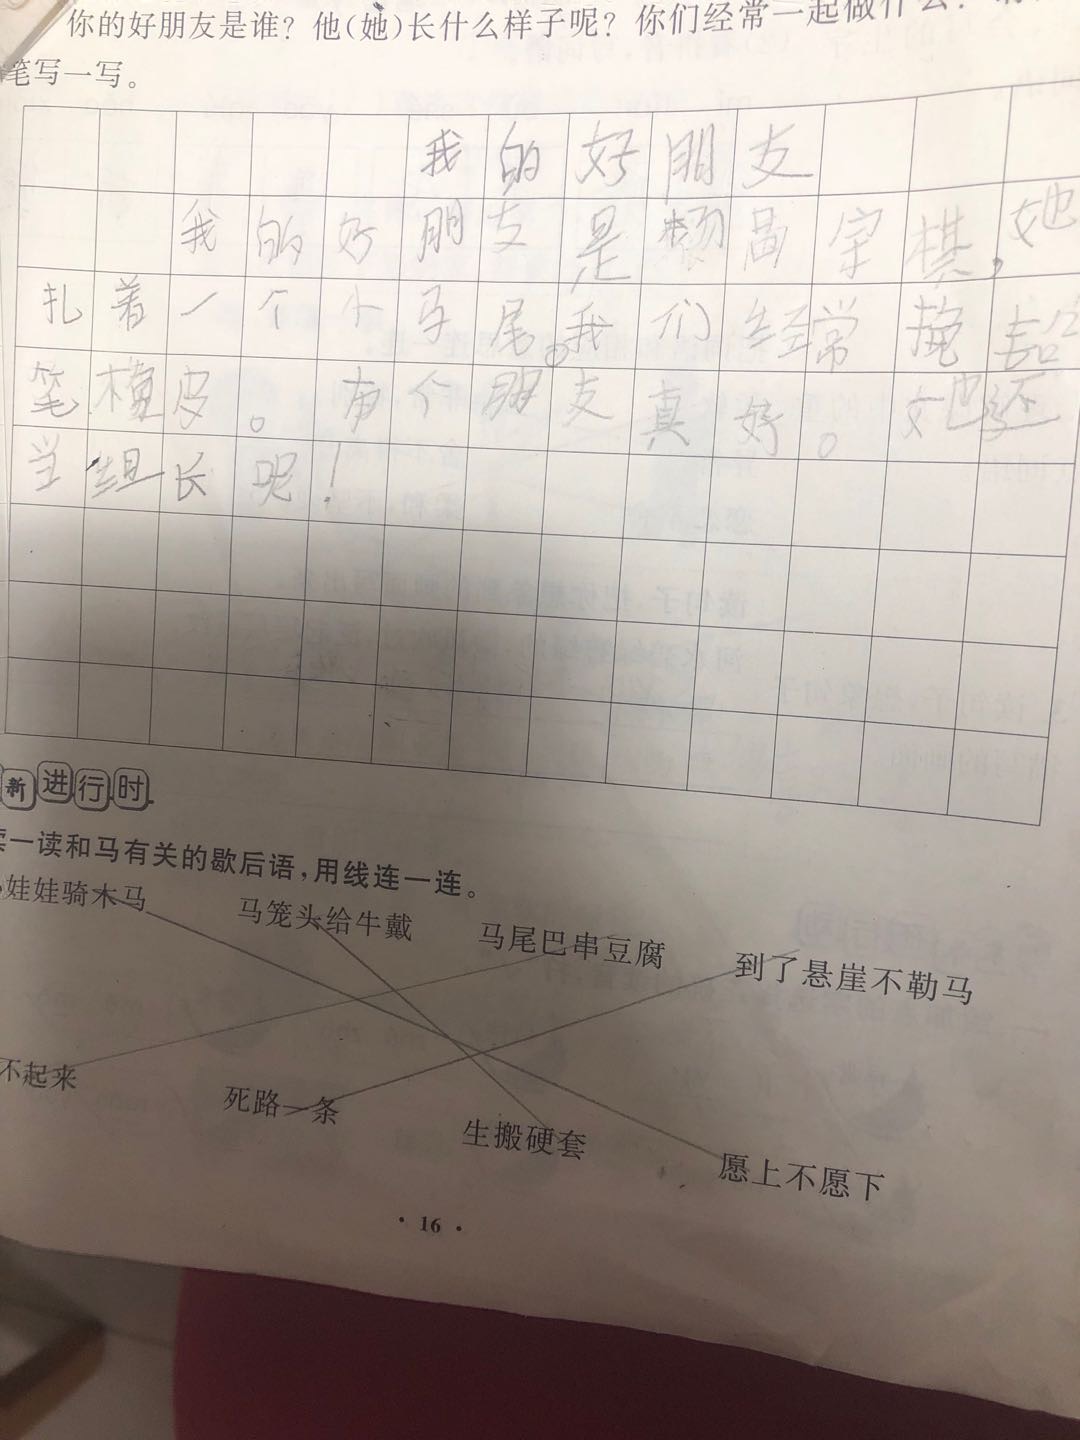 你的好朋友是谁？他(她)长什么样子呢？你们经常一起做什么？
笔写一写。
我的好朋支
我的好朋支是杨
棋，她
扎着一个小马尾。我们经常
笔橡皮。有个朋支真好。她还
当组长呢！
新进行时
读一读和马有关的歇后语，用线连一连。
娃娃骑木马 马笼头给牛戴 马尾巴串豆腐 到了悬崖不勒马
不起来 死路一条 生搬硬套 愿上不愿下
·16·